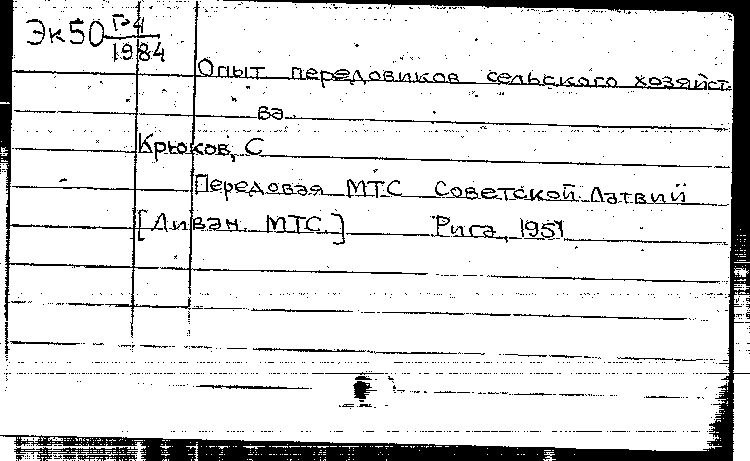 Эк50 Г-4
1984
Опыт передовиков сельского хозяйст
ва.
Крюков, С
Передовая МТС Советской Латвий
[Ливан. МТС.] Рига, 1951